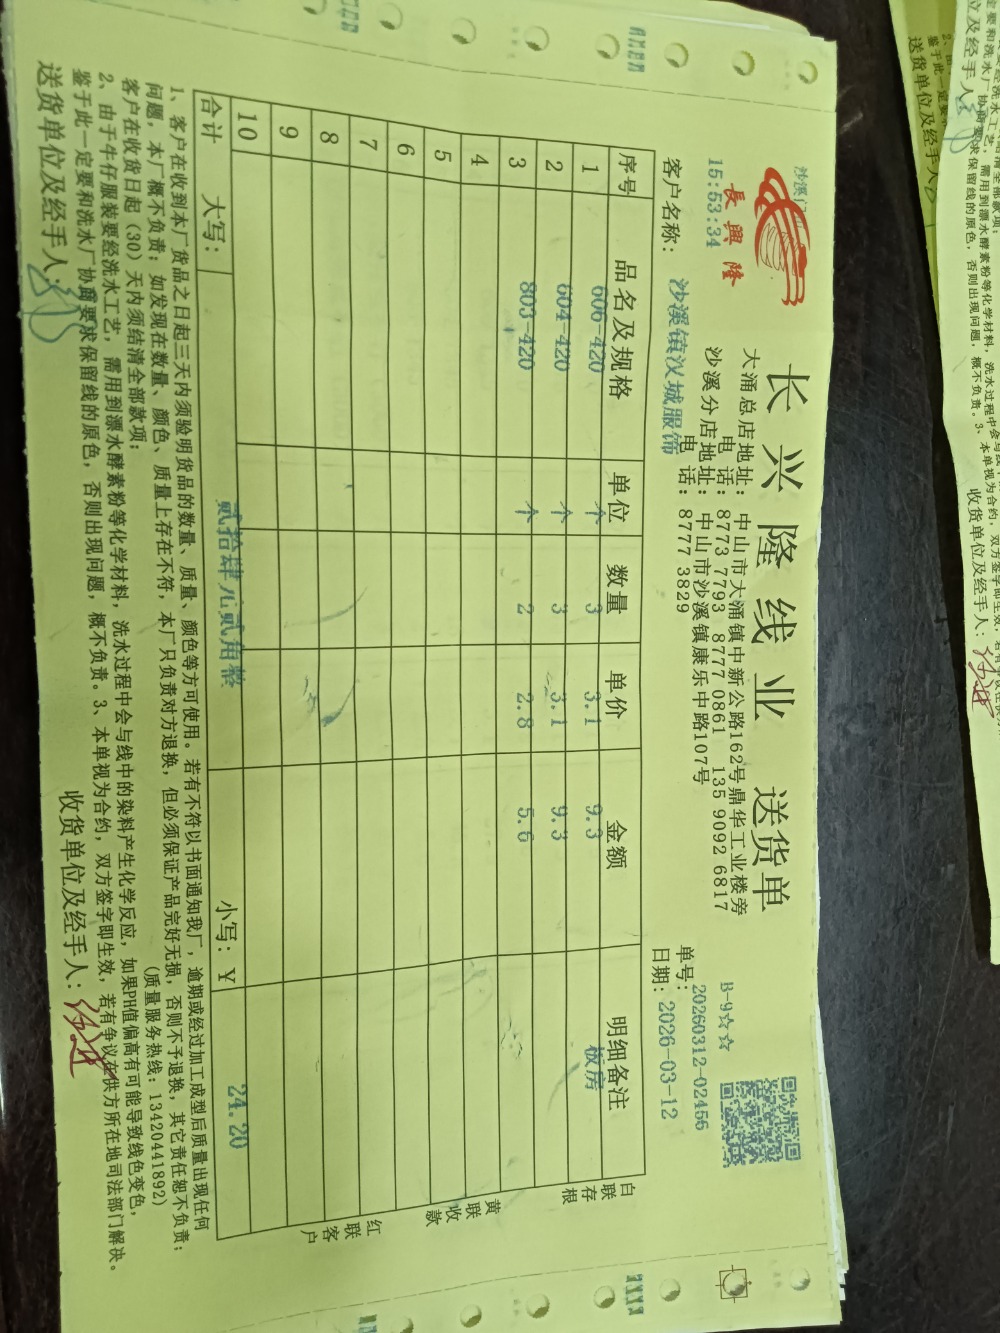 长兴隆线业 送货单
長興隆
沙溪
15:53:34
大涌总店地址:中山市大涌镇中新公路162号鼎华工业楼旁
电 话:8773 7793 8777 0861 135 9092 6817
沙溪分店地址:中山市沙溪镇康乐中路107号
电 话:8777 3829
B-9☆☆
单号:20260312-02456
日期:2026-03-12
客户名称: 沙溪镇汉城服饰
序号 品名及规格 单位 数量 单价 金额 明细备注
1 606-420 个 3 3.1 9.3 板房
2 604-420 个 3 3.1 9.3
3 803-420 个 2 2.8 5.6
4
5
6
7
8
9
10
合计 大写: 贰拾肆元贰角整 小写:¥ 24.20
白联存根
黄联收款
红联客户
1、客户在收到本厂货品之日起三天内须验明货品的数量、质量、颜色等方可使用。若有不符以书面通知我厂,逾期或经过加工成型后质量出现任何
问题,本厂概不负责;如发现在数量、颜色、质量上存在不符,本厂只负责对方退换,但必须保证产品完好无损,否则不予退换,其它责任恕不负责;
客户在收货日起(30)天内须结清全部款项; (质量服务热线:13420441892)
2、由于牛仔服装要经洗水工艺,需用到漂水酵素粉等化学材料,洗水过程中会与线中的染料产生化学反应,如果PH值偏高有可能导致线色变色,
鉴于此一定要和洗水厂协商要求保留线的原色,否则出现问题,概不负责。3、本单视为合约,双方签字即生效,若有争议在供方所在地司法部门解决。
送货单位及经手人: 收货单位及经手人:
送货单位及经手人
收货单位及经手人: